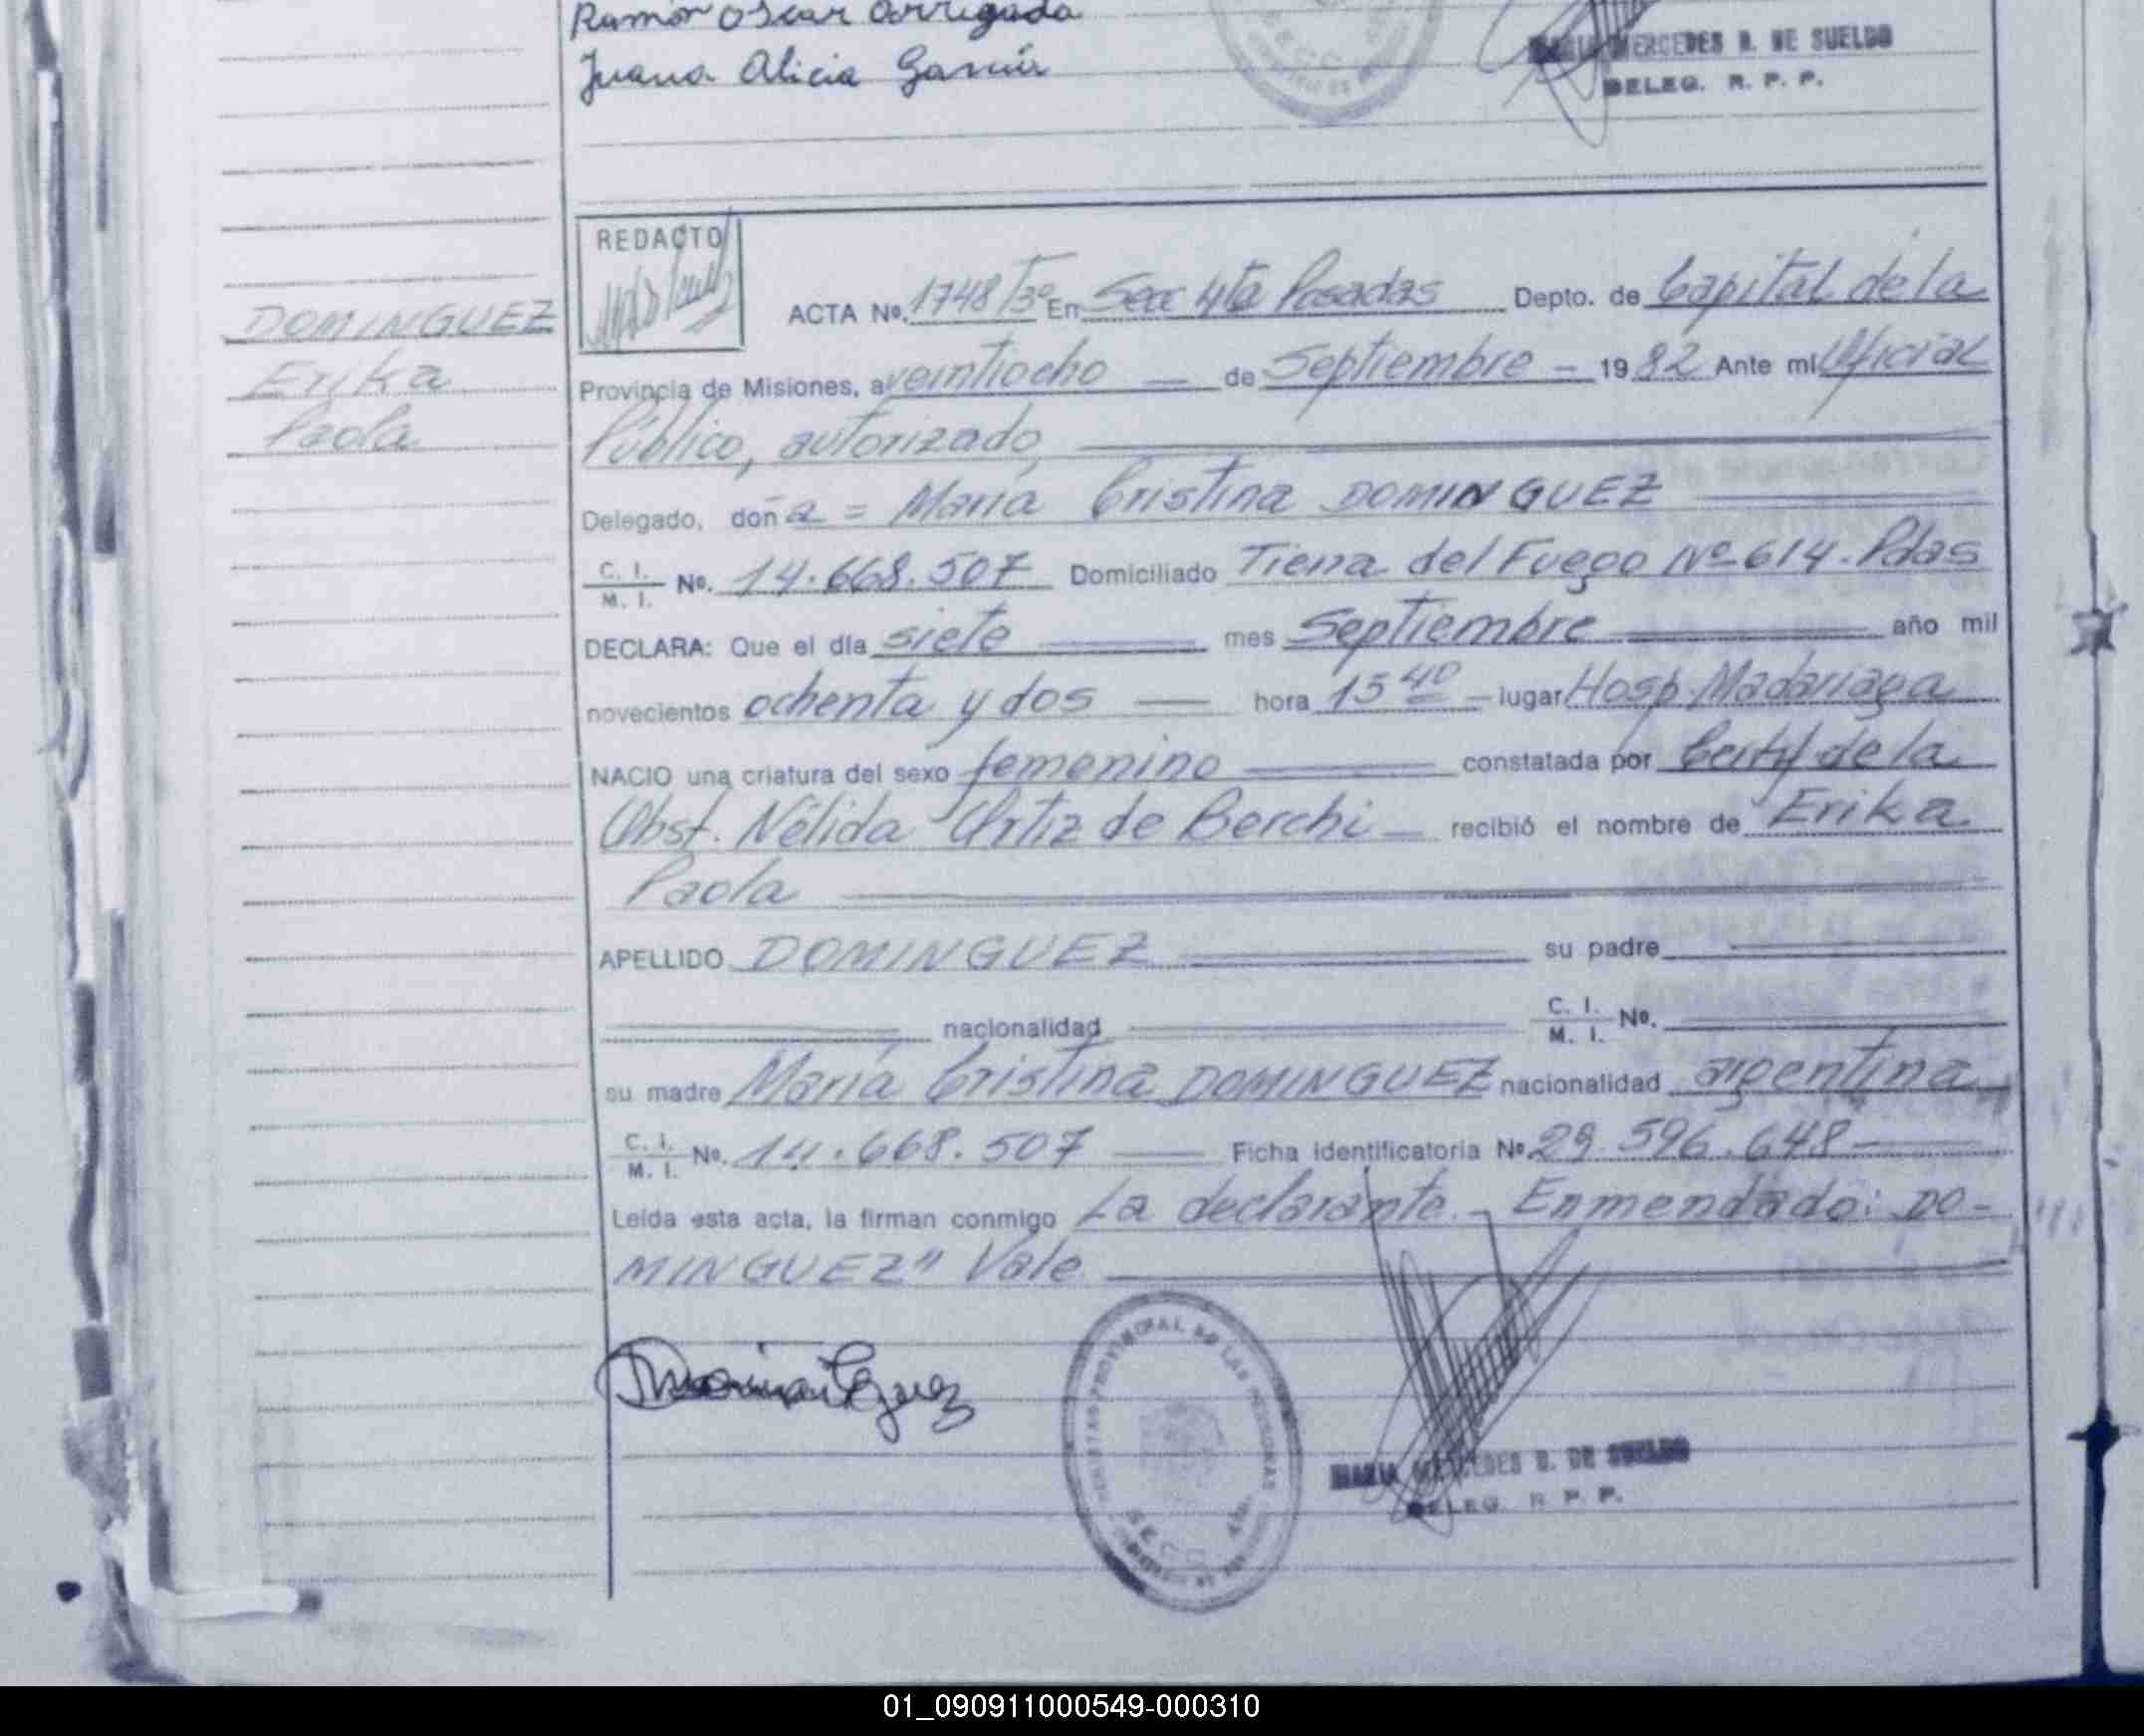 Ramón Oscar Arrigada
Juana Alicia García
MARIA MERCEDES B. DE SUELDO
DELEG. R. P. P.
DOMINGUEZ
Erika
Paola
REDACTO
ACTA Nº. 1748/3º En Secc 4ta Posadas Depto. de Capital de la
Provincia de Misiones, a veintiocho — de Septiembre - 1982 Ante mi Oficial
Público, autorizado,
Delegado, doña = María Cristina DOMINGUEZ
C. I. / M. I. Nº. 14.668.507 Domiciliado Tierra del Fuego Nº 614. Pdas
DECLARA: Que el día siete mes Septiembre año mil
novecientos ochenta y dos — hora 15 40 - lugar Hosp. Madariaga
NACIO una criatura del sexo femenino constatada por Certif de la
Obst. Nélida Ortiz de Berchi — recibió el nombre de Erika
Paola
APELLIDO DOMINGUEZ su padre
nacionalidad C. I. / M. I. Nº.
su madre María Cristina DOMINGUEZ nacionalidad argentina
C. I. / M. I. Nº. 14.668.507 — Ficha identificatoria Nº 29.596.648
Leída esta acta, la firman conmigo La declarante. - Enmendado: DO-
MINGUEZ" Vale
PROVINCIAL DE LAS PERSONAS
MARIA MERCEDES B. DE SUELDO
DELEG. R. P. P.
01_090911000549-000310